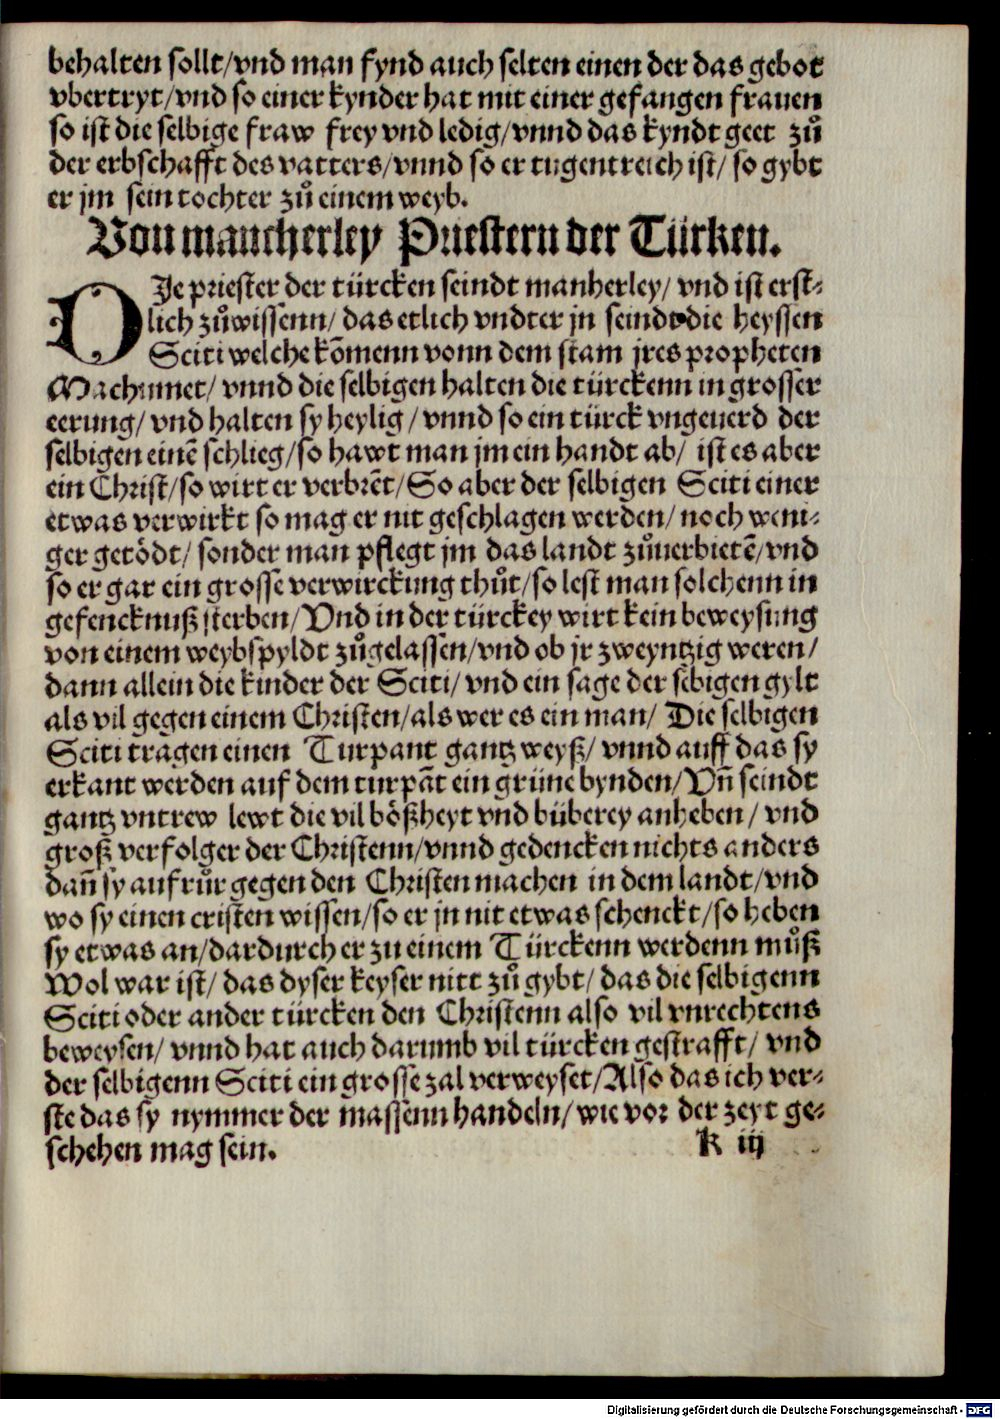 behalten sollt/vnd man fynd auch selten einen der das gebot
vbertryt/vnd so einer kynder hat mit einer gefangen frauen
so ist die selbige fraw frey vnd ledig/vnnd das kyndt geet zů
der erbschafft des vatters/vnnd so er tugentreich ist/ so gybt
er jm sein tochter zů einem weyb.
Von mancherley Priestern der Türken.
DJe priester der türcken seindt manherley/ vnd ist erst⸗
lich zůwissenn/ das etlich vndter jn seindt die heyssen
Sciti welche kōmenn vonn dem stam jres propheten
Machumet/ vnnd die selbigen halten die türckenn in grosser
eerung/ vnd halten sy heylig / vnnd so ein türck vngeuerd der
selbigen einē schlieg/so hawt man jm ein handt ab/ ist es aber
ein Christ/so wirt er verbrēt/So aber der selbigen Sciti einer
etwas verwirkt so mag er nit geschlagen werden/ noch weni⸗
ger getödt/ sonder man pflegt jm das landt zůuerbietē/vnd
so er gar ein grosse verwirckung thůt/so lest man solchenn in
gefencknuß sterben/Vnd in der türckey wirt kein beweysung
von einem weybspyldt zůgelassen/vnd ob jr zweyntzig weren/
dann allein die kinder der Sciti/ vnd ein sage der sebigen gylt
als vil gegen einem Christen/als wer es ein man/ Die selbigen
Sciti tragen einen Turpant gantz weyß/ vnnd auff das sy
erkant werden auf dem turpāt ein grüne bynden/Vñ seindt
gantz vntrew lewt die vil bößheyt vnd büberey anheben / vnd
groß verfolger der Christenn/vnnd gedencken nichts anders
dañ sy aufrůr gegen den Christen machen in dem landt/vnd
wo sy einen cristen wissen/so er jn nit etwas schenckt/so heben
sy etwas an/dardurch er zu einem Türckenn werdenn můß
Wol war ist/ das dyser keyser nitt zů gybt/ das die selbigenn
Sciti oder ander türcken den Christenn also vil vnrechtens
beweysen/ vnnd hat auch darumb vil türcken gestrafft/ vnd
der selbigenn Sciti ein grosse zal verweyset/Also das ich ver⸗
ste das sy nymmer der massenn handeln/ wie vor der zeyt ge⸗
schehen mag sein.
K iij
Digitalisierung gefördert durch die Deutsche Forschungsgemeinschaft - DFG